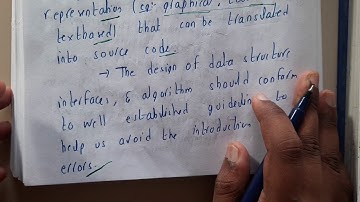 represntation (eg: graphical,
textbased) that can be translated
into source code.
→ The design of data structure
interfaces, & algorithm should conform
to well established guideline to
help us avoid the introduction
errors.